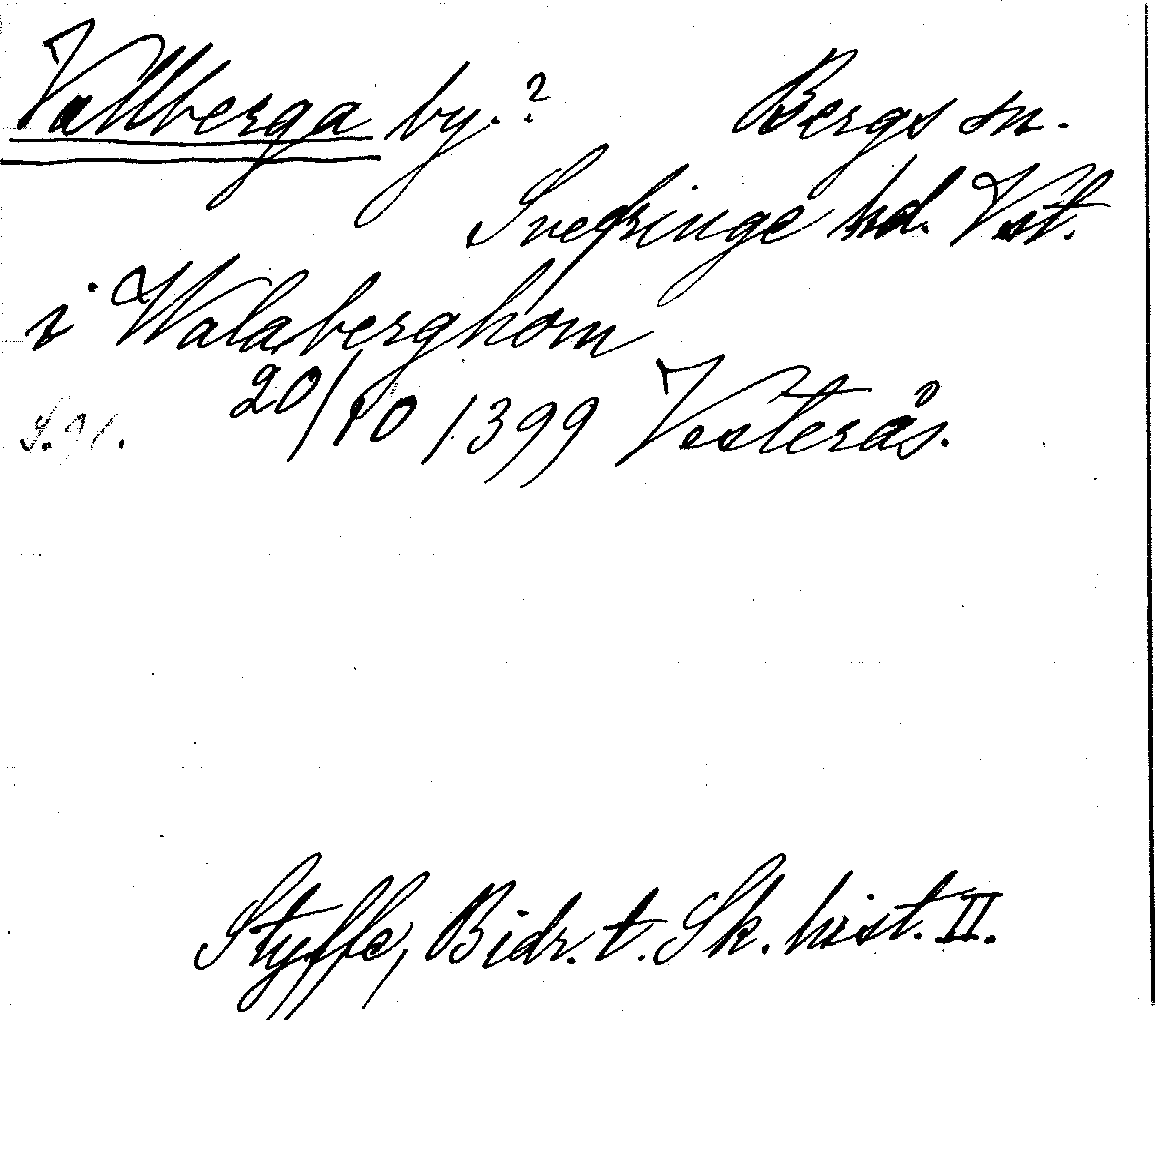 Vallberga by.? Bergs sn.
Snefringe hd. Vstl.
i Walaberghom
S. 91. 20/10 1399 Vesterås.
Styffe, Bidr. t. Sk. hist. II.